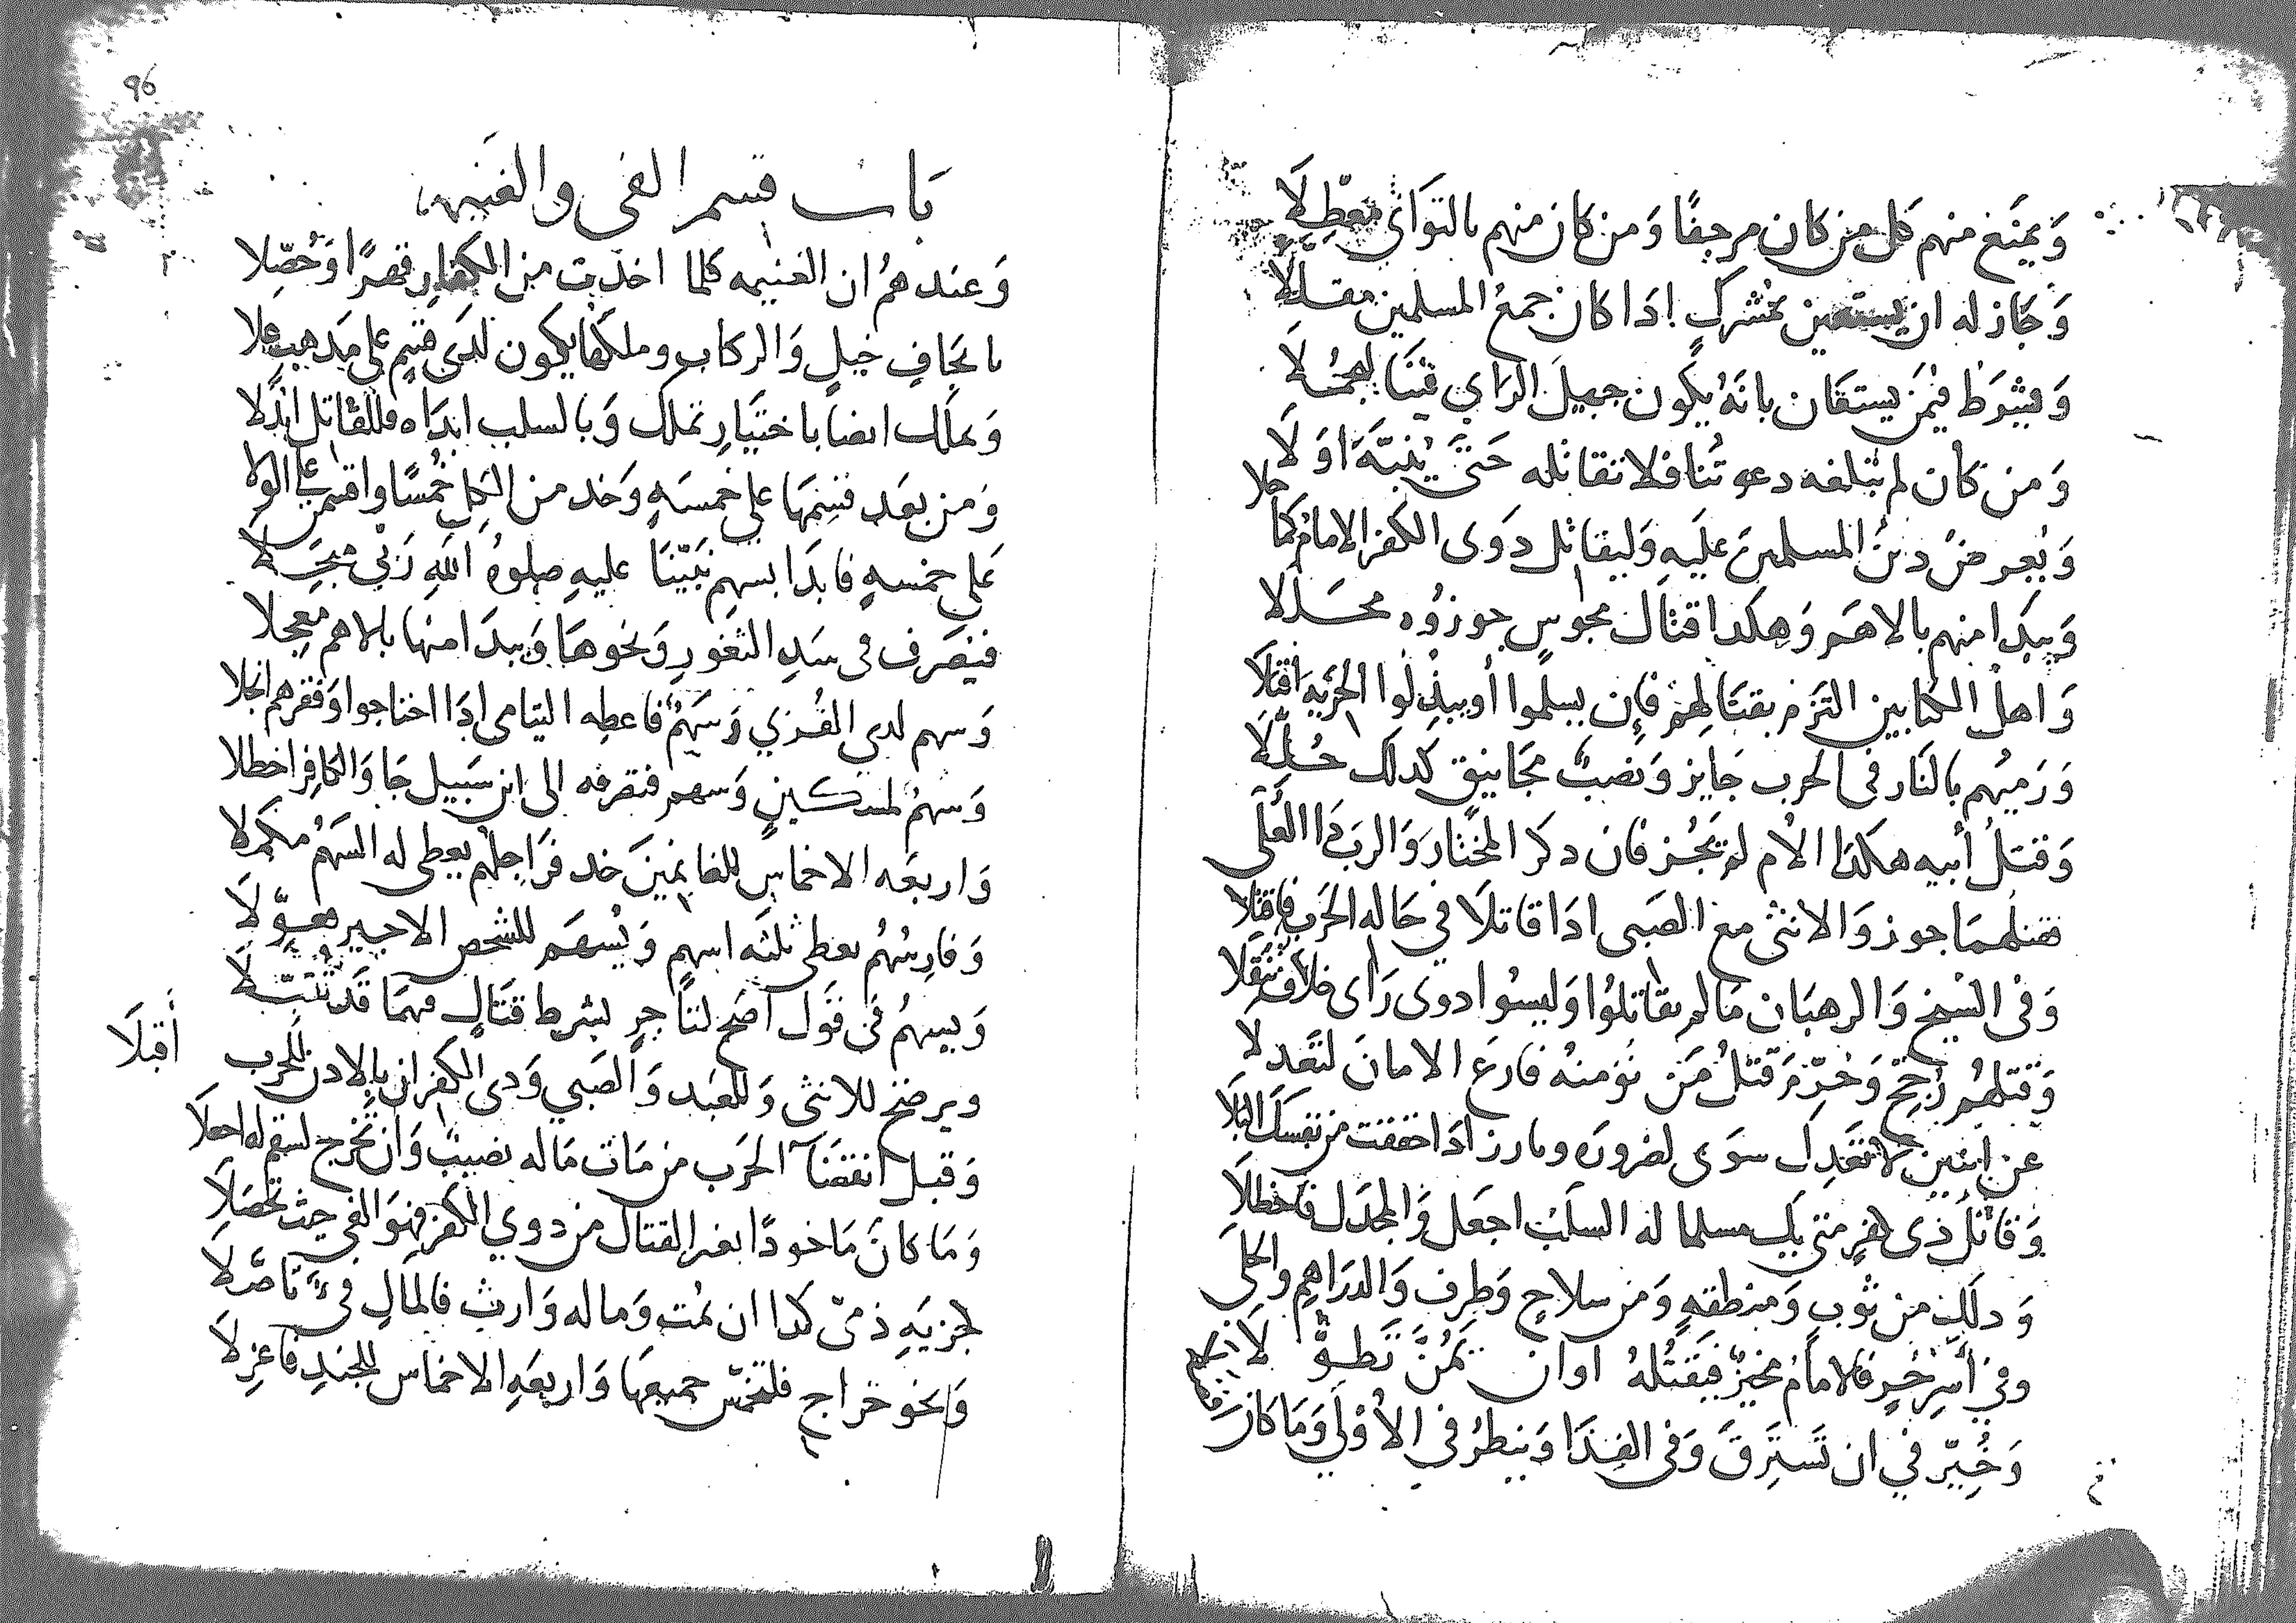 وَيمنَع منهم كل من كان مرجفًا وَمن كان منهم بالتوَانى معطِّلَا
وَجَاز له ان يستعين بمشركٍ اذا كان جمعُ المسلمين مقللَا
وَيشرَط فيمَن يستعَان بانهُ يكون جميلَ الرَاي فينَا
وَمن كان لم تبلغه دعوتُنا فلا تقاتله حَتى ينبَّهَ اوَلَا
وَيُعرضُ دينُ المسلمينَ عليَهِ وَليقاتل ذوى الكفر الامامُ كما حلا
وَيبدَا منهم بالاهَم وَهكذا قتال مجوسٍ جوزوُه محَدلَا
وَاهلُ الكتابين التزم بقتَالهم فإن يسلموا أو يبذلُوا الجزيَه اقبَلَا
وَرَميُهم بالنَار فى الحرب جَايز وَنصبُ مجَانيق كذلك حُلِّلَا
وَقتلُ أبيه هكذا الأم لم يَجُز فان ذكرَ المختَار وَالربَ ذَا العُلَى
فقتلُهمَا جوز وَالانثى مع الصَبى اذَا قاتلَا في حَاله الحَرب فاقتلا
وَفى الشيخ وَالرهبَان مَا لم يقاتلوُا وَليسوُا ذوى رَاى خلافٌ تنُقِّلَا
وَقتلهمُ رُجّح وَحرّم قتلُ مَن نؤمنهُ فارعَ الامانَ لتَعدلَا
عن اثنين لا تعَدِل سوَى لضرورَه وبارز اذَا حققت من نفسكَ البَلَا
وَقاتلُ ذى كفرٍ متى يك مسلما له السلَبُ اجعَل وَالمجدل فاخطلَا
وَذلك من ثوبٍ وَمنطقهٍ وَمن سلاحٍ وَطِرفٍ وَالدرَاهم والحلَى
وفي أسرِ حُرٍ فالامامُ مخيرٌ فيَقتُلهُ اوان يمُنَّ تَطوُّلَا
وَخُيّر في ان تَستَرِقَ وَفى الفِدَا وَينظرُ في الأوْلَى وَمَا كان
باب قسم الفى والغنيمه
وَعندهمُ ان الغنيمه كلما اخذت من الكفارِ قهرًا وَحُصّلا
بايجَافِ خيلٍ وَالركاب وملكها يكون لدَى قسمٍ على مذهب علا
وَيملك ايضا باختيَارِ تملك وَبالسلب ابدَاه فللقاتل ابذُلا
وَمن بعَد قسِمهَا على خمسَهٍ وَخذ من الكلِ خُمسًا واقسمن على الولا
عَلى خمسهٍ فابدَا بسهم نبيّنَا عليهِ صلوهُ اللهِ رَبي مبجّلا
فيُصرَف فى سَدِ الثغورِ وَنحوهَا وَيبدَا منها بالاهم معجلا
وَسهم لذي القُربي وَسَهمٌ فاعطِه اليتامى اذَا احتاجوا وَفقرهم انجلا
وَسهمُ لمسكينٍ وَسهم فتصرفه الى ابن سَبيل جَا وَالكافِر اخطلا
وَاربعَه الاخماسِ للغانمينَ خذ فرَاجلهم يعطى له السَهمُ مكمَلا
وَفارِسُهُم يعطى ثلثَه اسهم وَيُسهَم للشخص الاجير معوِّلَا
وَيسهمُ فى قوَل اصَح لتَاجرٍ بشرط قتَالٍ مهمَا قَد تَسَبّلَا
ويرضخ للانثى وَللعَبد وَالصَبي وَذى الكفر ان بالاذن للحَرب أقبلَا
وَقبل انقضَآ الحَرب من مَات مَاله نصيبٌ وَان يَخرج لسقم له اجعلَا
وَمَا كانَ مَاخوذًا بغير القتال من ذوي الكفر فهوَ الفي حيث تحصَلَا
لجزيَهِ ذمىّ كذا ان يمُت وَماله وَارث فالمَالِ فىءٌ تَاصّلَا
وَنحو خراج فلتخمّس جميعهَا وَاربعَهِ الاخماس للجندِ فاعزلَا
96